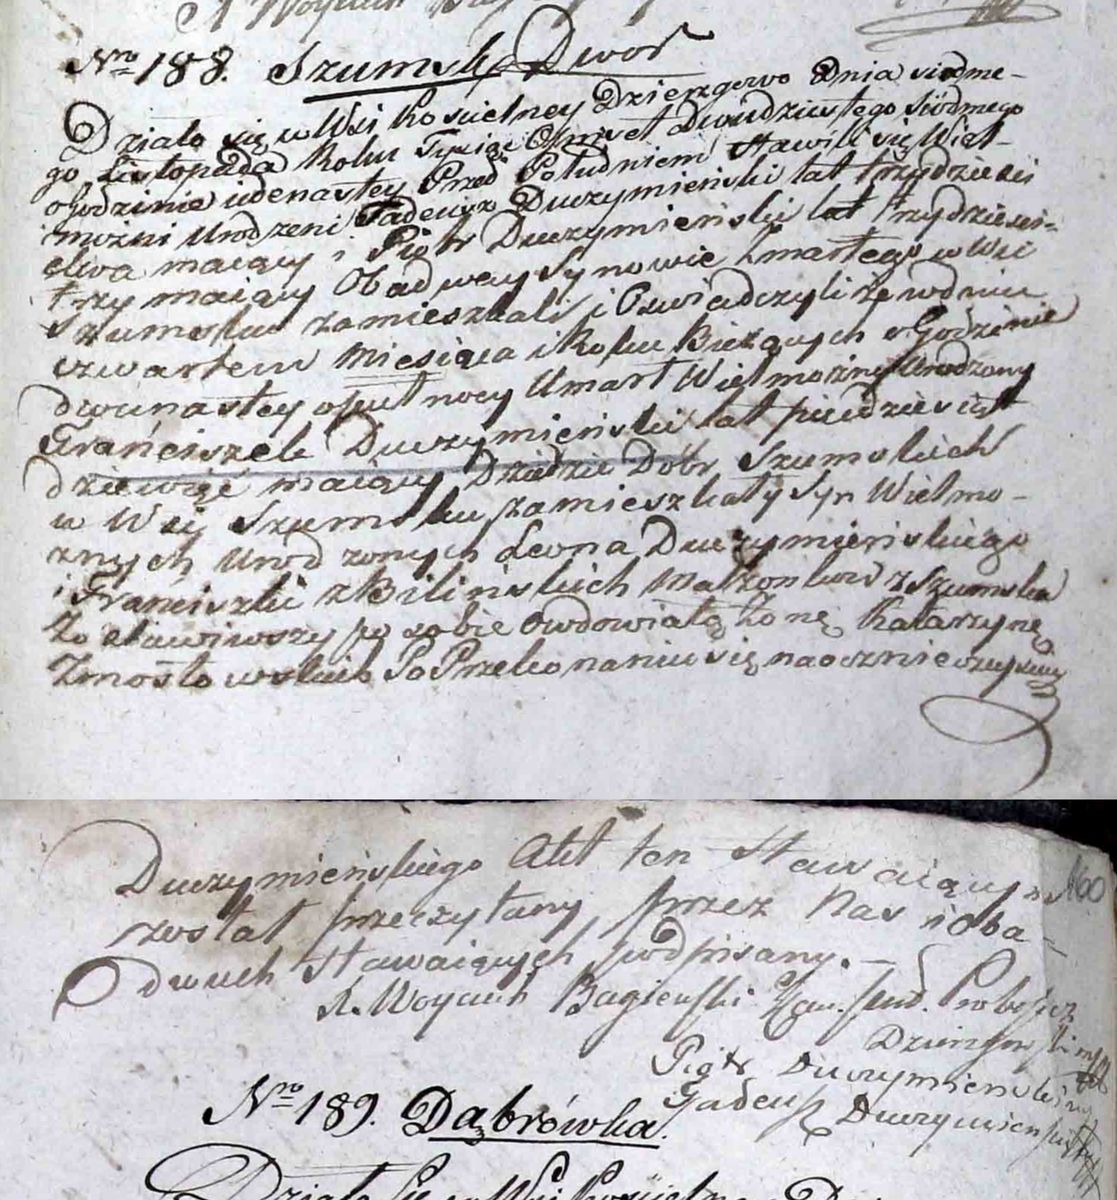 X Woyciech
Nro 188. Szumsk Dwor
Działo się w Wsi Kościelney Dzierzgowo Dnia siodme-
go Listopada Roku Tysiąc Ośmset Dwudziestego Siódmego
o godzinie iedenastey Przed Południem stawili się Wiel-
możni Urodzeni Tadeusz Duczymieński lat trzydzieści
dwa maiący i Piotr Duczymieński lat trzydzieści
trzy maiący Obadway Synowie zmarłego w Wsi
Szumsku zamieszkali i Oswiadczyli że w dniu
czwartem Miesiąca i Roku Bieżących o Godzinie
dwunastey o puł nocy Umarł Wielmożny Urodzony
Franciszek Duczymieński lat pięćdziesiąt
dziewięć maiący Dziedzic Dobr Szumskich
w Wsi Szumsku zamieszkały Syn Wielmo-
żnych Urodzonych Leona Duczymieńskiego
i Franciszki z Bilińskich Małżonków z Szumska
Zostawiwszy po sobie Owdowiałą Żonę Katarzynę
Zmosłowskich Po Przekonaniu się naocznie
Duczymieńskiego Akt ten stawaiącym
został przeczytany przez Nas i oba-
dwuch stawaiących podpisany. —
X. Woyciech Bagieński Proboszcz
Dzierzgowski
Piotr Duczymieński
Tadeusz Duczymieński
Nro 189. Dąbrówka.
Działo się w Wsi Kościelney